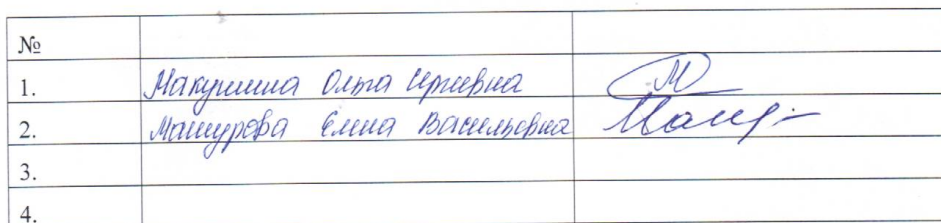 №
1. Макушина Ольга Юрьевна
2. Машурова Елена Васильевна
3.
4.